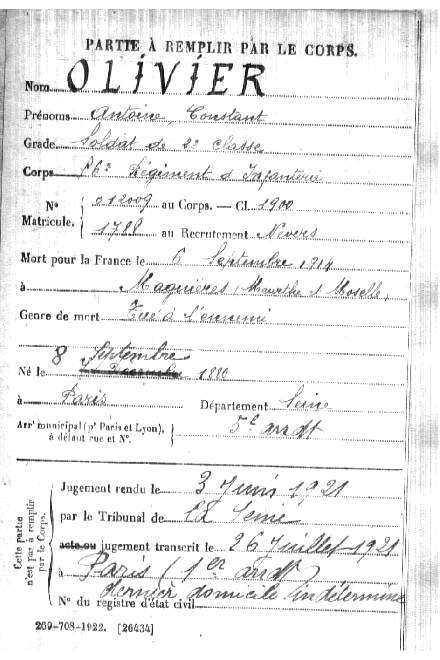 PARTIE À REMPLIR PAR LE CORPS.
Nom OLIVIER
Prénoms Antoine, Constant
Grade Soldat de 2e Classe
Corps 86e Régiment d'Infanterie
N° Matricule. 012009 au Corps. — Cl. 1900
1788 au Recrutement Nevers
Mort pour la France le 6 Septembre 1914
à Magnières, Meurthe et Moselle,
Genre de mort Tué à l'ennemi
8 Septembre
Né le 1880
à Paris Département Seine
Arrt municipal (pr Paris et Lyon), à défaut rue et N°. 5e arrdt
Cette partie n'est pas à remplir par le Corps.
Jugement rendu le 3 Juin 1921
par le Tribunal de La Seine
acte ou jugement transcrit le 26 Juillet 1921
à Paris (1er arrdt)
dernier domicile indéterminé
N° du registre d'état civil
269-708-1922. [26434]